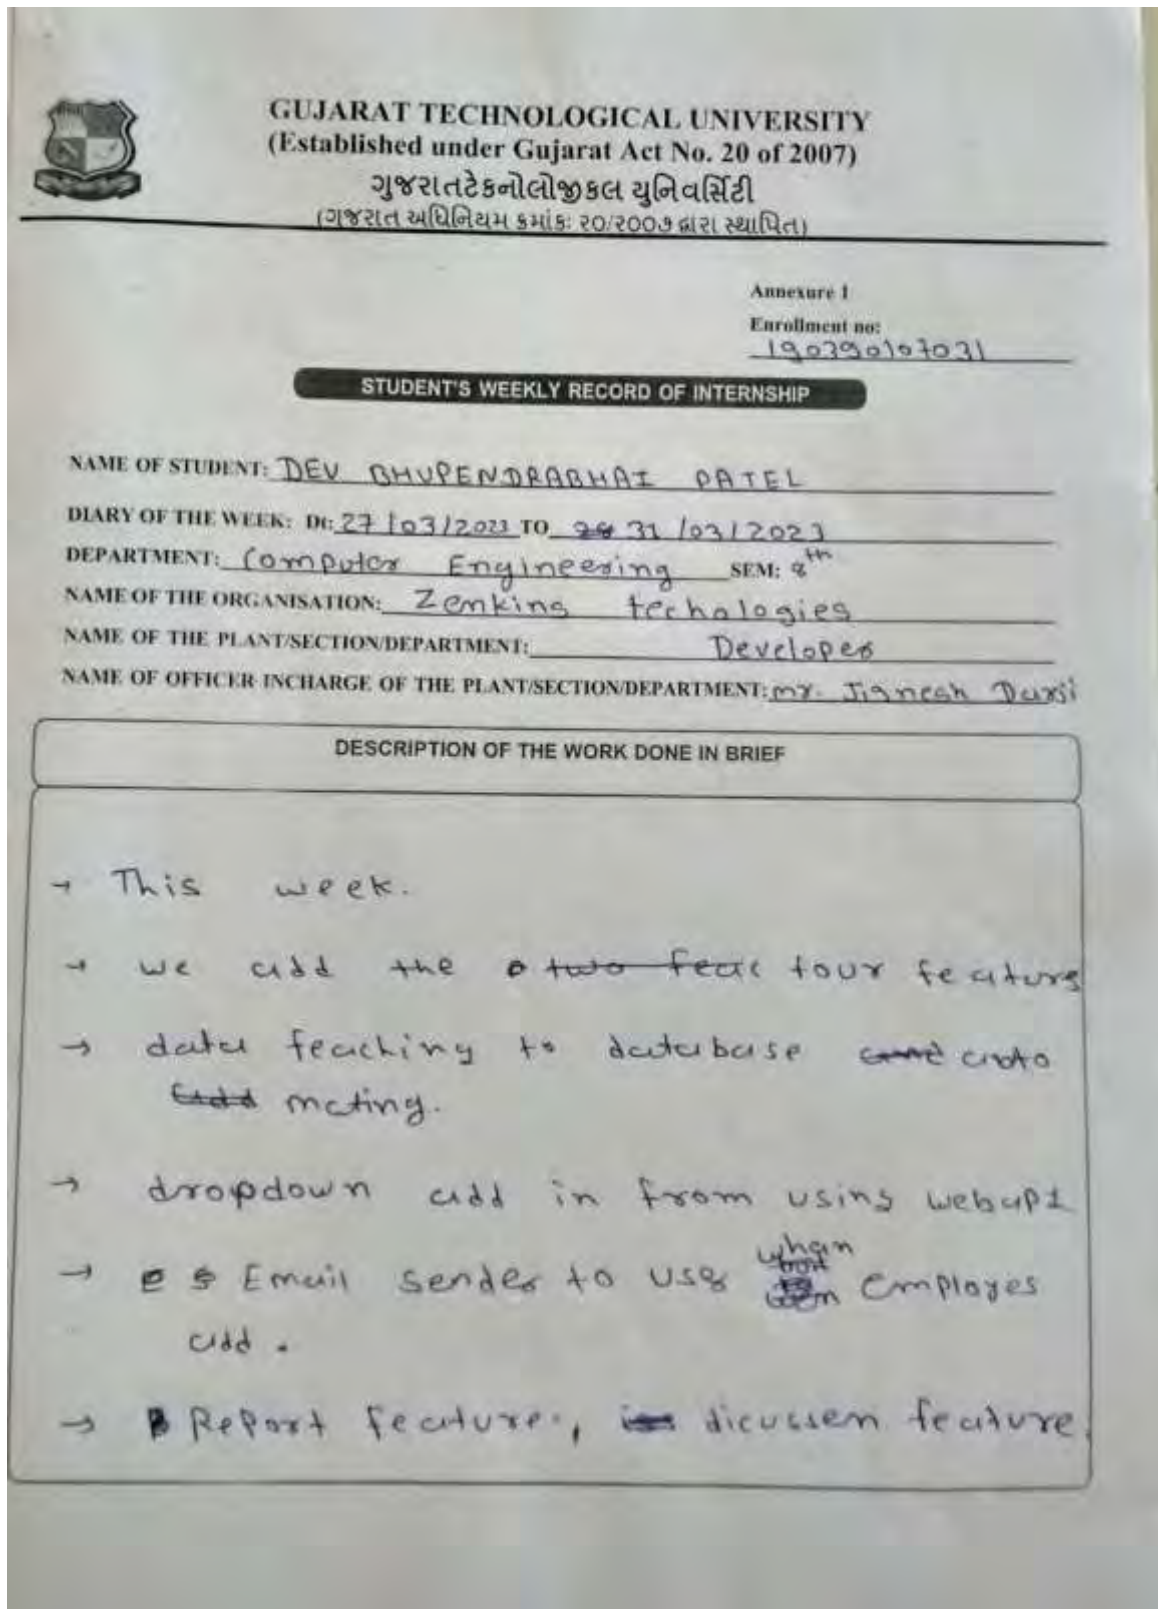 GUJARAT TECHNOLOGICAL UNIVERSITY
(Established under Gujarat Act No. 20 of 2007)
ગુજરાતટેકનોલોજીકલ યુનિવર્સિટી
(ગુજરાત અધિનિયમ ક્રમાંકઃ ૨૦/૨૦૦૭ દ્વારા સ્થાપિત)
Annexure 1
Enrollment no:
190390107031
STUDENT'S WEEKLY RECORD OF INTERNSHIP
NAME OF STUDENT: DEV BHUPENDRABHAI PATEL
DIARY OF THE WEEK: Dt: 27/03/2023 TO 31/03/2023
DEPARTMENT: Computer Engineering SEM: 8th
NAME OF THE ORGANISATION: Zenking techologies
NAME OF THE PLANT/SECTION/DEPARTMENT: Developer
NAME OF OFFICER INCHARGE OF THE PLANT/SECTION/DEPARTMENT: mr. Jignesh Darji
DESCRIPTION OF THE WORK DONE IN BRIEF
→ This week.
→ we add the two feac four feature
→ data feaching to database auto
mating.
→ dropdown add in from using webapi
→ Email sender to user when employes
add.
→ Report feature, dicussen feature